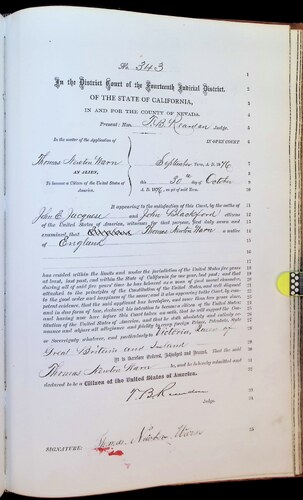 No 343
In the District Court of the Fourteenth Judicial District.
OF THE STATE OF CALIFORNIA,
IN AND FOR THE COUNTY OF NEVADA.
Present: Hon. T. B. Reardan Judge.
In the matter of the Application of
IN OPEN COURT
Thomas Newton Warn
September Term, A. D. 1876.
AN ALIEN,
To become a Citizen of the United States of America.
this 30th day of October
A. D. 1876, as yet of said Term.
It appearing to the satisfaction of this Court, by the oaths of
John E. Jacques and John Blackford citizens
of the United States of America, witnesses for that purpose, first duly sworn and
examined, that Thomas Newton Warn a native
of England
has resided within the limits and under the jurisdiction of the United States five years
at least, last past, and within the State of California for one year, last past; and that
during all of said five years' time he has behaved as a man of good moral character,
attached to the principles of the Constitution of the United States, and well disposed
to the good order and happiness of the same; and it also appearing to the Court, by com-
petent evidence, that the said applicant has heretofore, and more than two years since,
and in due form of law, declared his intention to become a citizen of the United States
and having now here before this Court taken an oath, that he will support the Con-
stitution of the United States of America, and that he doth absolutely and entirely re-
nounce and abjure all allegiance and fidelity to every foreign Prince, Potentate, State
or Sovereignty whatever, and particularly to Victoria, Queen of
Great Britain and Ireland
It is therefore Ordered, Adjudged and Decreed, That the said
Thomas Newton Warn be, and he is hereby admitted and
declared to be a Citizen of the United States of America.
T. B. Reardan
Judge.
SIGNATURE: Thomas Newton Warn